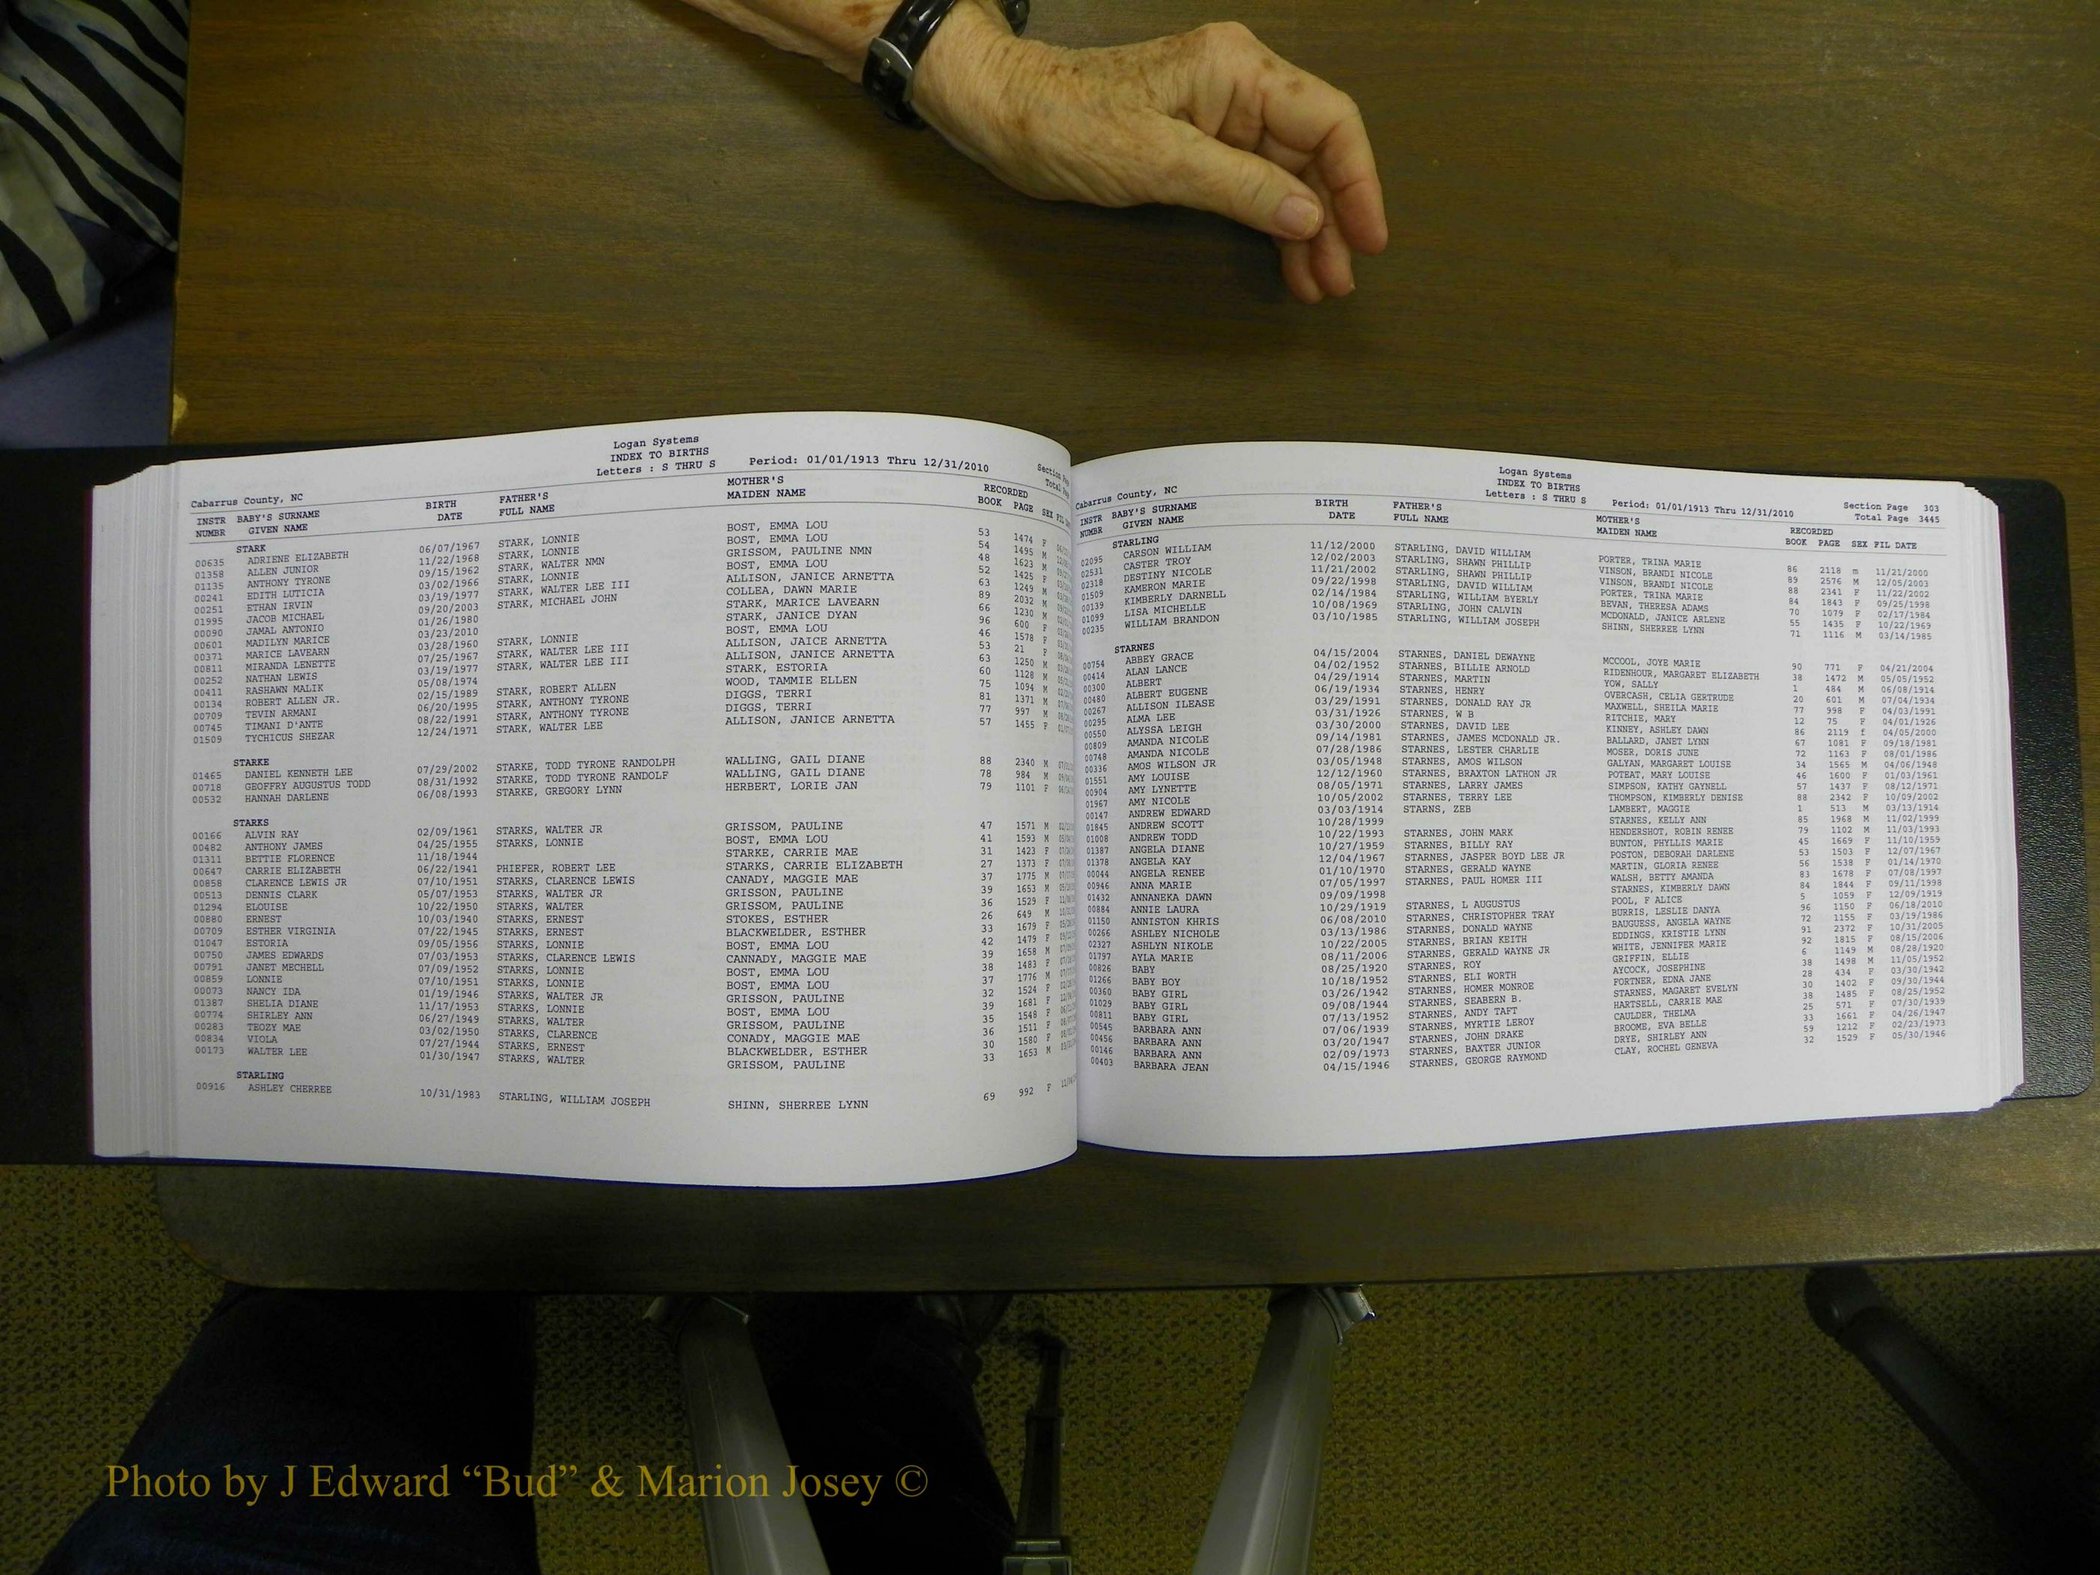 Logan Systems
INDEX TO BIRTHS
Letters : S THRU S Period: 01/01/1913 Thru 12/31/2010
Cabarrus County, NC
INSTR BABY'S SURNAME BIRTH FATHER'S MOTHER'S RECORDED
NUMBR GIVEN NAME DATE FULL NAME MAIDEN NAME BOOK PAGE SEX FIL
STARK
00635 ADRIENE ELIZABETH 06/07/1967 STARK, LONNIE BOST, EMMA LOU 53 1474 F
01358 ALLEN JUNIOR 11/22/1968 STARK, LONNIE BOST, EMMA LOU 54 1495 M
01135 ANTHONY TYRONE 09/15/1962 STARK, WALTER NMN GRISSOM, PAULINE NMN 48 1623 M
00241 EDITH LUTICIA 03/02/1966 STARK, LONNIE BOST, EMMA LOU 52 1425 F
00251 ETHAN IRVIN 03/19/1977 STARK, WALTER LEE III ALLISON, JANICE ARNETTA 63 1249 M
01995 JACOB MICHAEL 09/20/2003 STARK, MICHAEL JOHN COLLEA, DAWN MARIE 89 2032 M
00090 JAMAL ANTONIO 01/26/1980 STARK, MARICE LAVEARN 66 1230 M
00601 MADILYN MARICE 03/23/2010 STARK, JANICE DYAN 96 600 F
00371 MARICE LAVEARN 03/28/1960 STARK, LONNIE BOST, EMMA LOU 46 1578 F
00811 MIRANDA LENETTE 07/25/1967 STARK, WALTER LEE III ALLISON, JAICE ARNETTA 53 21 F
00252 NATHAN LEWIS 03/19/1977 STARK, WALTER LEE III ALLISON, JANICE ARNETTA 63 1250 M
00411 RASHAWN MALIK 05/08/1974 STARK, ESTORIA 60 1128 M
00134 ROBERT ALLEN JR. 02/15/1989 STARK, ROBERT ALLEN WOOD, TAMMIE ELLEN 75 1094 M
00709 TEVIN ARMANI 06/20/1995 STARK, ANTHONY TYRONE DIGGS, TERRI 81 1371 M
00745 TIMANI D'ANTE 08/22/1991 STARK, ANTHONY TYRONE DIGGS, TERRI 77 997 M
01509 TYCHICUS SHEZAR 12/24/1971 STARK, WALTER LEE ALLISON, JANICE ARNETTA 57 1455 F
STARKE
01465 DANIEL KENNETH LEE 07/29/2002 STARKE, TODD TYRONE RANDOLPH WALLING, GAIL DIANE 88 2340 M
00718 GEOFFRY AUGUSTUS TODD 08/31/1992 STARKE, TODD TYRONE RANDOLF WALLING, GAIL DIANE 78 984 M
00532 HANNAH DARLENE 06/08/1993 STARKE, GREGORY LYNN HERBERT, LORIE JAN 79 1101 F
STARKS
00166 ALVIN RAY 02/09/1961 STARKS, WALTER JR GRISSOM, PAULINE 47 1571 M
00482 ANTHONY JAMES 04/25/1955 STARKS, LONNIE BOST, EMMA LOU 41 1593 M
01311 BETTIE FLORENCE 11/18/1944 STARKE, CARRIE MAE 31 1423 F
00647 CARRIE ELIZABETH 06/22/1941 PHIEFER, ROBERT LEE STARKS, CARRIE ELIZABETH 27 1373 F
00858 CLARENCE LEWIS JR 07/10/1951 STARKS, CLARENCE LEWIS CANADY, MAGGIE MAE 37 1775 M
00513 DENNIS CLARK 05/07/1953 STARKS, WALTER JR GRISSON, PAULINE 39 1653 M
01294 ELOUISE 10/22/1950 STARKS, WALTER GRISSOM, PAULINE 36 1529 F
00880 ERNEST 10/03/1940 STARKS, ERNEST STOKES, ESTHER 26 649 M
00709 ESTHER VIRGINIA 07/22/1945 STARKS, ERNEST BLACKWELDER, ESTHER 33 1679 F
01047 ESTORIA 09/05/1956 STARKS, LONNIE BOST, EMMA LOU 42 1479 F
00750 JAMES EDWARDS 07/03/1953 STARKS, CLARENCE LEWIS CANNADY, MAGGIE MAE 39 1658 M
00791 JANET MECHELL 07/09/1952 STARKS, LONNIE BOST, EMMA LOU 38 1483 F
00859 LONNIE 07/10/1951 STARKS, LONNIE BOST, EMMA LOU 37 1776 M
00073 NANCY IDA 01/19/1946 STARKS, WALTER JR GRISSON, PAULINE 32 1524 F
01387 SHELIA DIANE 11/17/1953 STARKS, LONNIE BOST, EMMA LOU 39 1681 F
00774 SHIRLEY ANN 06/27/1949 STARKS, WALTER GRISSOM, PAULINE 35 1548 F
00283 TEOZY MAE 03/02/1950 STARKS, CLARENCE CONADY, MAGGIE MAE 36 1511 F
00834 VIOLA 07/27/1944 STARKS, ERNEST BLACKWELDER, ESTHER 30 1580 F
00173 WALTER LEE 01/30/1947 STARKS, WALTER GRISSOM, PAULINE 33 1653 M
STARLING
00916 ASHLEY CHERREE 10/31/1983 STARLING, WILLIAM JOSEPH SHINN, SHERREE LYNN 69 992 F
Logan Systems
INDEX TO BIRTHS
Letters : S THRU S Period: 01/01/1913 Thru 12/31/2010
Cabarrus County, NC
Section Page 303
Total Page 3445
INSTR BABY'S SURNAME BIRTH FATHER'S MOTHER'S RECORDED
NUMBR GIVEN NAME DATE FULL NAME MAIDEN NAME BOOK PAGE SEX FIL DATE
STARLING
02095 CARSON WILLIAM 11/12/2000 STARLING, DAVID WILLIAM PORTER, TRINA MARIE 86 2118 m 11/21/2000
02531 CASTER TROY 12/02/2003 STARLING, SHAWN PHILLIP VINSON, BRANDI NICOLE 89 2576 M 12/05/2003
02318 DESTINY NICOLE 11/21/2002 STARLING, SHAWN PHILLIP VINSON, BRANDI NICOLE 88 2341 F 11/22/2002
01509 KAMERON MARIE 09/22/1998 STARLING, DAVID WILLIAM PORTER, TRINA MARIE 84 1843 F 09/25/1998
00139 KIMBERLY DARNELL 02/14/1984 STARLING, WILLIAM BYERLY BEVAN, THERESA ADAMS 70 1079 F 02/17/1984
01099 LISA MICHELLE 10/08/1969 STARLING, JOHN CALVIN MCDONALD, JANICE ARLENE 55 1435 F 10/22/1969
00235 WILLIAM BRANDON 03/10/1985 STARLING, WILLIAM JOSEPH SHINN, SHERREE LYNN 71 1116 M 03/14/1985
STARNES
00754 ABBEY GRACE 04/15/2004 STARNES, DANIEL DEWAYNE MCCOOL, JOYE MARIE 90 771 F 04/21/2004
00414 ALAN LANCE 04/02/1952 STARNES, BILLIE ARNOLD RIDENHOUR, MARGARET ELIZABETH 38 1472 M 05/05/1952
00300 ALBERT 04/29/1914 STARNES, MARTIN YOW, SALLY 1 484 M 06/08/1914
00480 ALBERT EUGENE 06/19/1934 STARNES, HENRY OVERCASH, CELIA GERTRUDE 20 601 M 07/04/1934
00267 ALLISON ILEASE 03/29/1991 STARNES, DONALD RAY JR MAXWELL, SHEILA MARIE 77 998 F 04/03/1991
00295 ALMA LEE 03/31/1926 STARNES, W B RITCHIE, MARY 12 75 F 04/01/1926
00550 ALYSSA LEIGH 03/30/2000 STARNES, DAVID LEE KINNEY, ASHLEY DAWN 86 2119 f 04/05/2000
00809 AMANDA NICOLE 09/14/1981 STARNES, JAMES MCDONALD JR. BALLARD, JANET LYNN 67 1081 F 09/18/1981
00748 AMANDA NICOLE 07/28/1986 STARNES, LESTER CHARLIE MOSER, DORIS JUNE 72 1163 F 08/01/1986
00336 AMOS WILSON JR 03/05/1948 STARNES, AMOS WILSON GALYAN, MARGARET LOUISE 34 1565 M 04/06/1948
01551 AMY LOUISE 12/12/1960 STARNES, BRAXTON LATHON JR POTEAT, MARY LOUISE 46 1600 F 01/03/1961
00904 AMY LYNETTE 08/05/1971 STARNES, LARRY JAMES SIMPSON, KATHY GAYNELL 57 1437 F 08/12/1971
01967 AMY NICOLE 10/05/2002 STARNES, TERRY LEE THOMPSON, KIMBERLY DENISE 88 2342 F 10/09/2002
00147 ANDREW EDWARD 03/03/1914 STARNS, ZEB LAMBERT, MAGGIE 1 513 M 03/13/1914
01845 ANDREW SCOTT 10/28/1999 STARNES, KELLY ANN 85 1968 M 11/02/1999
01008 ANDREW TODD 10/22/1993 STARNES, JOHN MARK HENDERSHOT, ROBIN RENEE 79 1102 M 11/03/1993
01387 ANGELA DIANE 10/27/1959 STARNES, BILLY RAY BUNTON, PHYLLIS MARIE 45 1669 F 11/10/1959
01378 ANGELA KAY 12/04/1967 STARNES, JASPER BOYD LEE JR POSTON, DEBORAH DARLENE 53 1503 F 12/07/1967
00044 ANGELA RENEE 01/10/1970 STARNES, GERALD WAYNE MARTIN, GLORIA RENEE 56 1538 F 01/14/1970
00946 ANNA MARIE 07/05/1997 STARNES, PAUL HOMER III WALSH, BETTY AMANDA 83 1678 F 07/08/1997
01432 ANNANEKA DAWN 09/09/1998 STARNES, KIMBERLY DAWN 84 1844 F 09/11/1998
00884 ANNIE LAURA 10/29/1919 STARNES, L AUGUSTUS POOL, F ALICE 5 1059 F 12/09/1919
01150 ANNISTON KHRIS 06/08/2010 STARNES, CHRISTOPHER TRAY BURRIS, LESLIE DANYA 96 1150 F 06/18/2010
00266 ASHLEY NICHOLE 03/13/1986 STARNES, DONALD WAYNE BAUGUESS, ANGELA WAYNE 72 1155 F 03/19/1986
02327 ASHLYN NIKOLE 10/22/2005 STARNES, BRIAN KEITH EDDINGS, KRISTIE LYNN 91 2372 F 10/31/2005
01797 AYLA MARIE 08/11/2006 STARNES, GERALD WAYNE JR WHITE, JENNIFER MARIE 92 1815 F 08/15/2006
00826 BABY 08/25/1920 STARNES, ROY GRIFFIN, ELLIE 6 1149 M 08/28/1920
01266 BABY BOY 10/18/1952 STARNES, ELI WORTH AYCOCK, JOSEPHINE 38 1498 M 11/05/1952
00360 BABY GIRL 03/26/1942 STARNES, HOMER MONROE FORTNER, EDNA JANE 28 434 F 03/30/1942
01029 BABY GIRL 09/08/1944 STARNES, SEABERN B. STARNES, MAGARET EVELYN 30 1402 F 09/30/1944
00811 BABY GIRL 07/13/1952 STARNES, ANDY TAFT HARTSELL, CARRIE MAE 38 1485 F 08/25/1952
00545 BARBARA ANN 07/06/1939 STARNES, MYRTIE LEROY CAULDER, THELMA 25 571 F 07/30/1939
00456 BARBARA ANN 03/20/1947 STARNES, JOHN DRAKE BROOME, EVA BELLE 33 1661 F 04/26/1947
00146 BARBARA ANN 02/09/1973 STARNES, BAXTER JUNIOR DRYE, SHIRLEY ANN 59 1212 F 02/23/1973
00403 BARBARA JEAN 04/15/1946 STARNES, GEORGE RAYMOND CLAY, ROCHEL GENEVA 32 1529 F 05/30/1946
Photo by J Edward “Bud” & Marion Josey ©